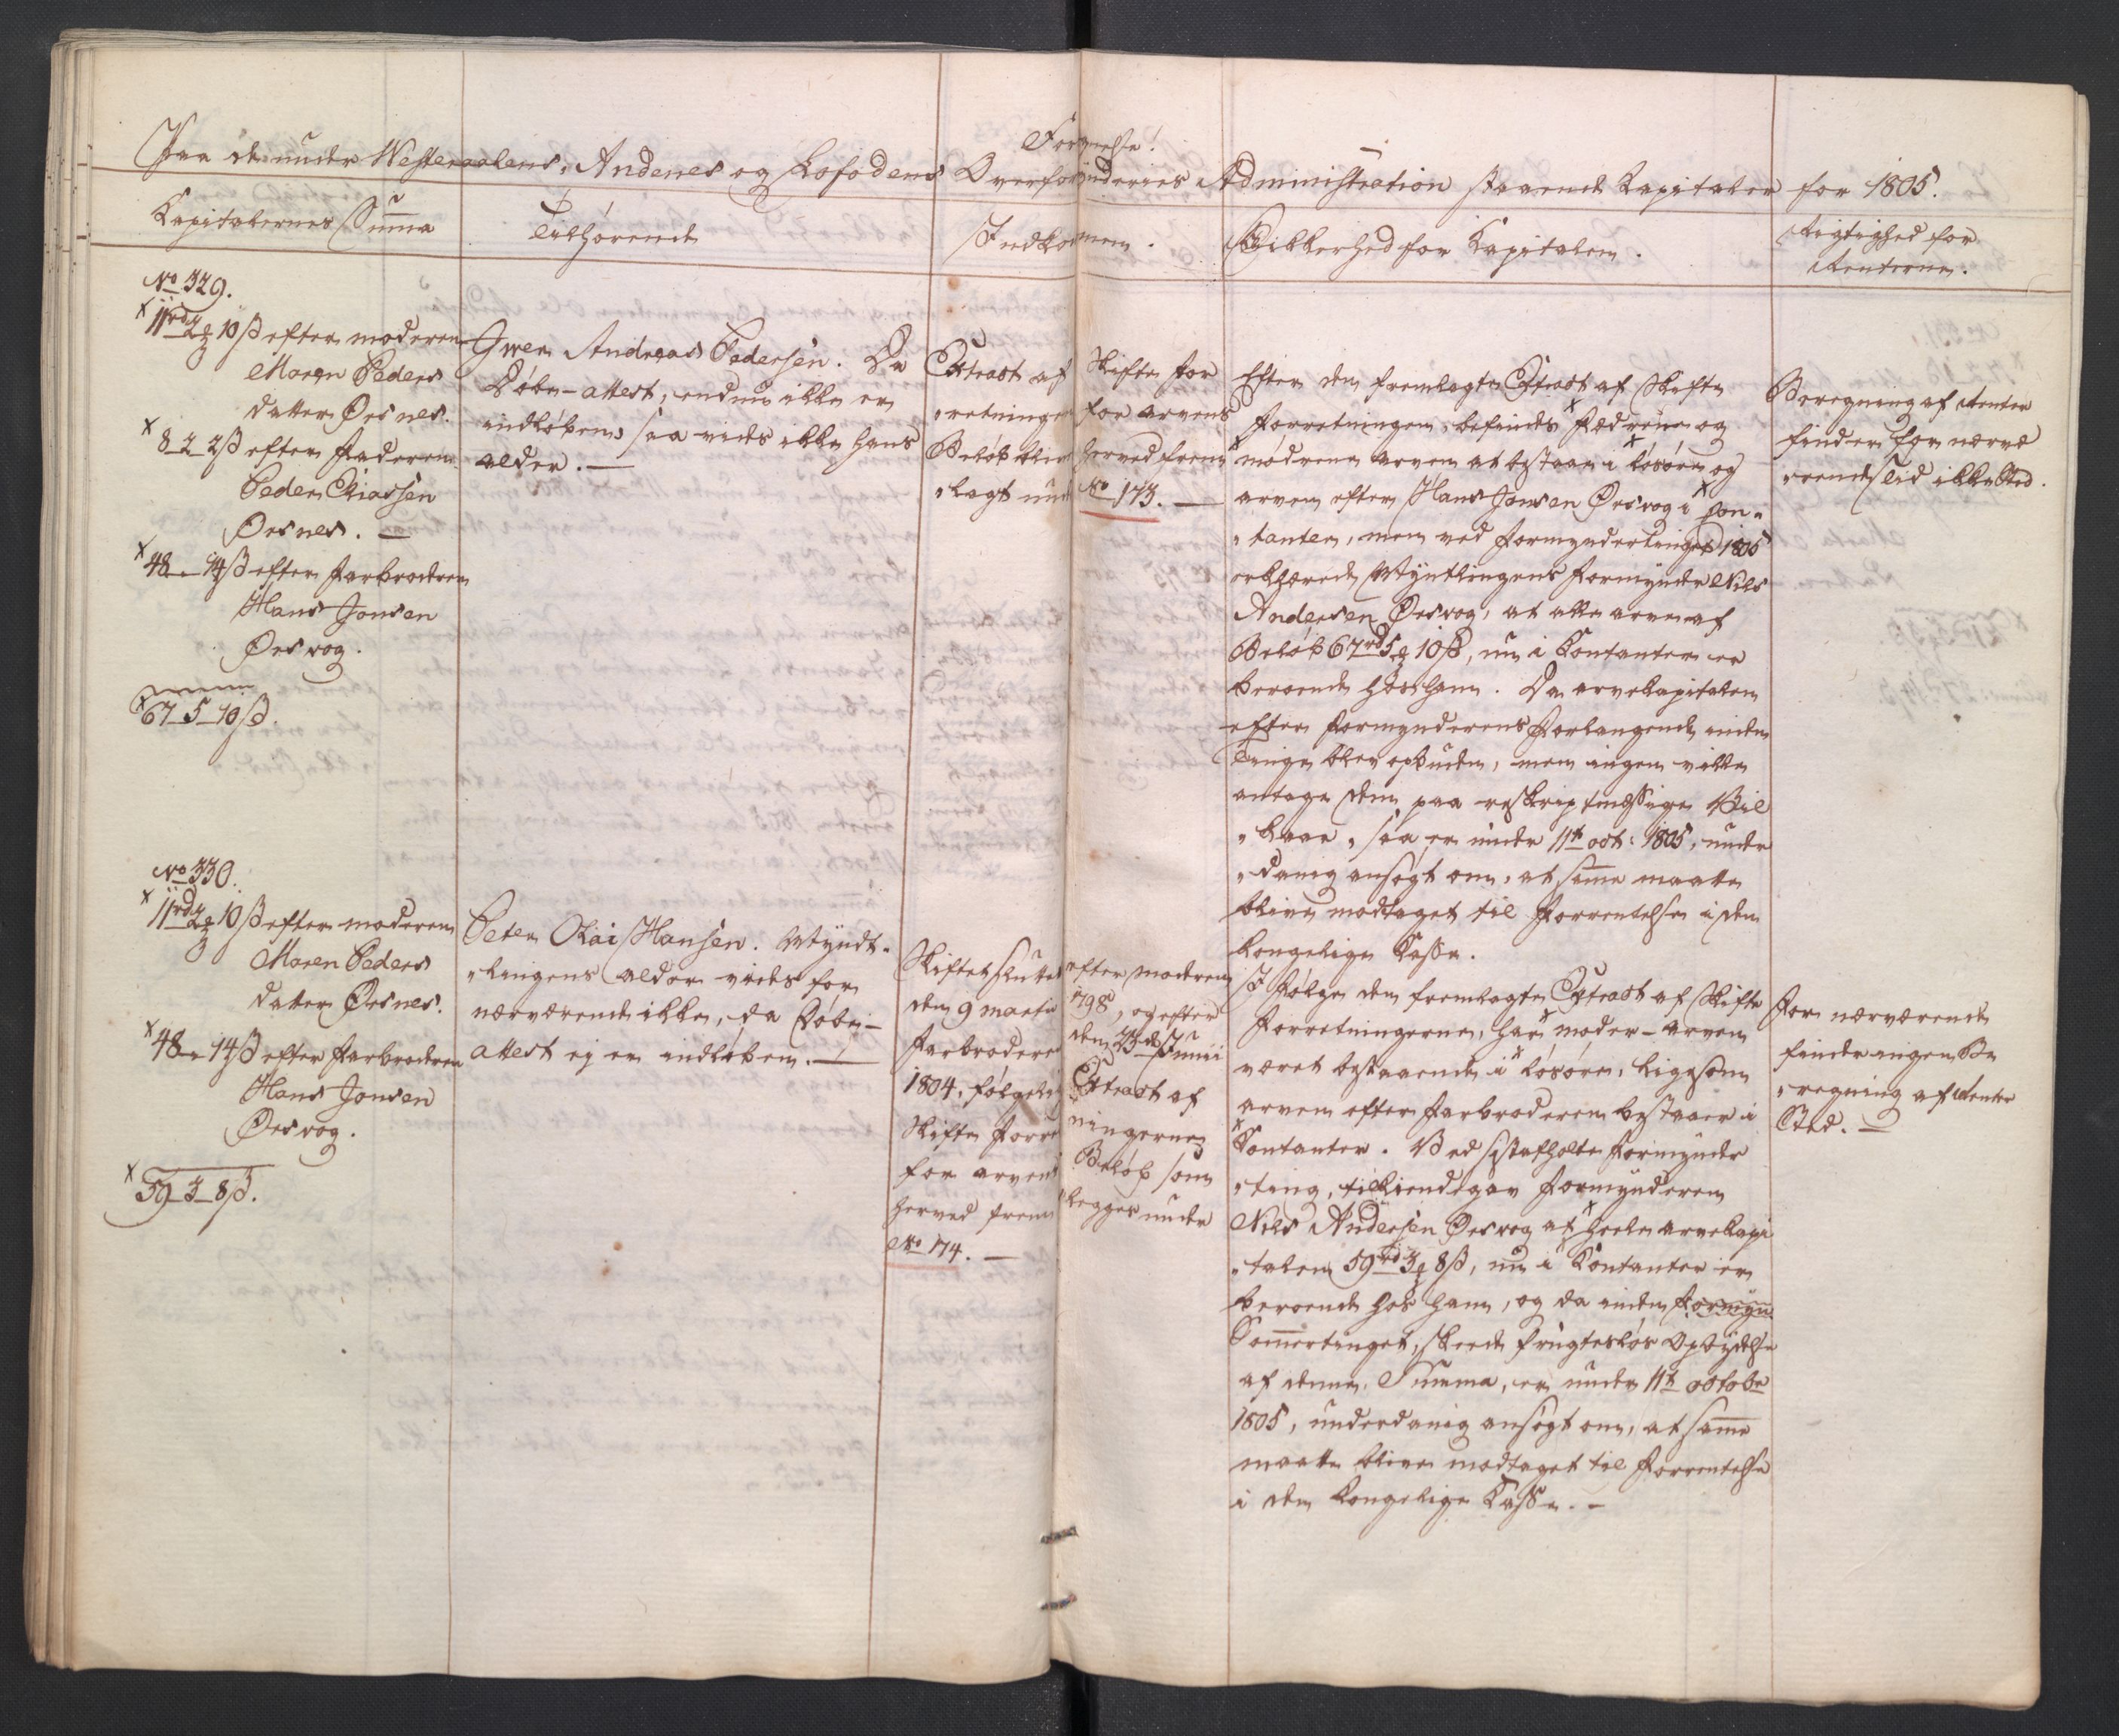 Fornyelse!
Paa de under Westeraalens, Andenes og Lofodens Overformynderies Administration staaende Kapitaler for 1805.
Kapitalernes Summa
Tilhørende
Indkommen.
Sikkerhed for Kapitalen.
Rigtighed for
Renterne.
No 329.
11rd 2 10 ß efter moderen
Maren Peders
datter Øesnes.
8 - 2 - 2 ß efter Faderen
Peder Eliassen
Øesnes. —
48 " 14 ß efter Farbroderen
Hans Jonsen
Øesvog.
67 - 5 - 10 ß.
Iwer Andreas Pedersen. Da
Døbe-attest, endnu ikke er
indløben, saa vides ikke hans
alder. —
Extract af Skifte for
"retningen for arvens
Beløb bliver herved frem
"lagt under No 173. —
Efter den fremlagte Extract af Skifte
Forretningen, befindes Fædrene og
mødrene arven at bestaae i løsøre og
arven efter Hans Jonsen Øesvog i Kon-
"tanter, men ved Formyndertinget 1805
erklærede Myntlingens Formynder Niels
Andersen Øesvog, at alle arven af
Beløb 67rd 5 10 ß, nu i Kontanter er
beroende hos ham. Da arvekapitalen
efter Formynderens Forlangende inden
Tinge blev opbuden, men ingen ville
antage den paa reskriptmæssige Vil
"kaar, saa er under 11te oct: 1805, under
"danig ansøgt om, at samme maatte
blive modtaget til Forrentelse i den
kongelige Kasse.
Beregning af Renter
finder for nærvæ
"rende Tid ikke Sted.
No 330.
11rd 2 10 ß efter moderen
Maren Peders
datter Øesnes.
48 " 14 ß efter Farbroderen
Hans Jonsen
Øesvog.
59 - 3 - 8 ß.
Peter Olai Hansen. Myndt-
"lingens alder vides for
nærværende ikke, da Døbe-
attest ej er indløben. —
Skiftet sluttet efter moderen
den 9 martii 1798, og efter
Farbroderen den 23de Junii
1804, følgelig Extract af
Skifte Forretningerne
for arvens Beløb som
herved fremlegges under
No 174. —
I Følge den fremlagte Extract af Skifte
Forretningerne, har moder-arven
været bestaaende i løsøre, ligesom
arven efter Farbroderen bestaaer i
Kontanter. Ved sistafholte Formynder
"ting, tilkiendegav Formynderen
Niels Andersen Øesvog at heele arvekapi
"talen 59rd 3 8 ß, nu i Kontanter er
beroende hos ham, og da inden Formyn
Sommertinget, skeede frugtesløs Opbydelse
af denne Summa, er under 11te octobr
1805, underdanig ansøgt om, at samme
maatte blive modtaget til Forrentelse
i den kongelige Kasse. —
For nærværende
finder ingen Be
"regning af Renter
Sted. —